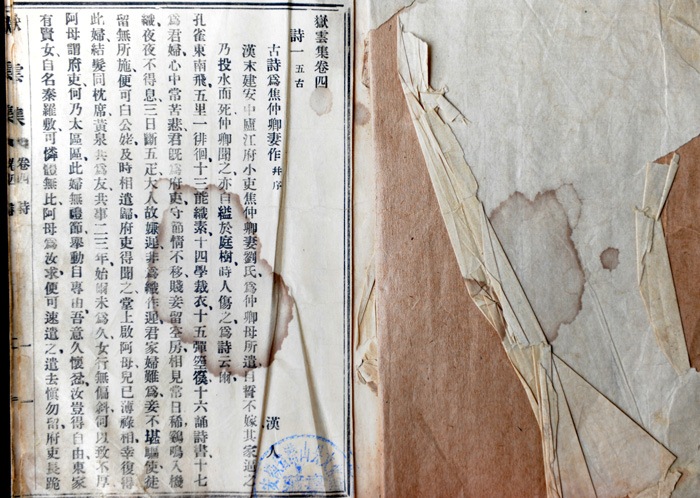 嶽雲集卷四
詩一 五古
古詩爲焦仲卿妻作 幷序 漢人
漢末建安中廬江府小吏焦仲卿妻劉氏爲仲卿母所遣自誓不嫁其家逼之
乃投水而死仲卿聞之亦自縊於庭樹時人傷之爲詩云爾
孔雀東南飛五里一徘徊十三能織素十四學裁衣十五彈箜篌十六誦詩書十七
爲君婦心中常苦悲君旣爲府吏守節情不移賤妾留空房相見常日稀鷄鳴入機
織夜夜不得息三日斷五疋大人故嫌遲非爲織作遲君家婦難爲妾不堪驅使徒
留無所施便可白公姥及時相遣歸府吏得聞之堂上啟阿母兒已薄祿相幸復得
此婦結髮同枕席黃泉共爲友共事二三年始爾未爲久女行無偏斜何以致不厚
阿母謂府吏何乃太區區此婦無禮節舉動自專由吾意久懷忿汝豈得自由東家
有賢女自名秦羅敷可憐體無比阿母爲汝求便可速遣之遣去愼勿留府吏長跪
嶽雲集 卷四 詩 一